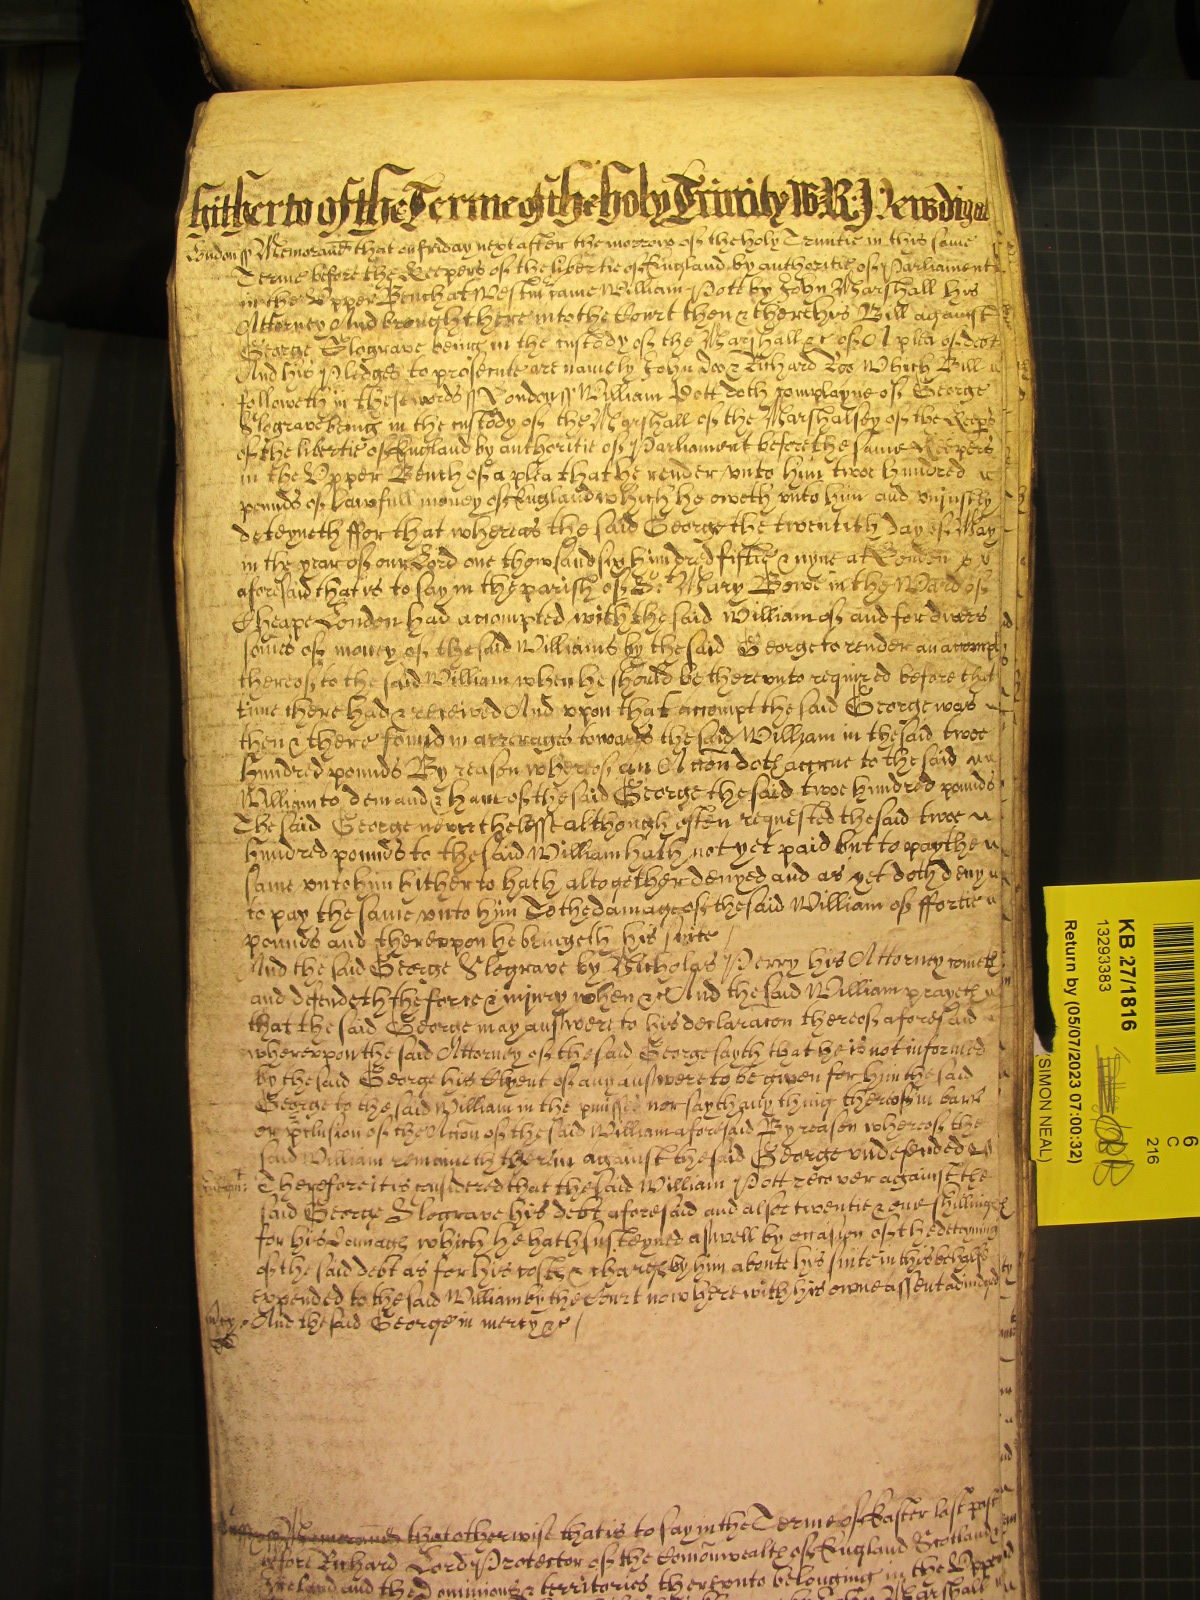 hitherto of the Terme of the holy Trinity W R: J Newdigate
London ss Memorand that on friday next after the morrow of the holy Trinitie in this same
Terme before the Keepers of the libertie of England by authoritie of Parliament
in the Upper Bench at Westm came William Pott by John Marshall his
Attorney And brought here into the Court then & there his Bill against
George Slograve being in the custody of the Marshall &c of A plea of debt
And his Pledges to prosecute are namely John Doo & Richard Roo Which Bill
followeth in these words ss London ss William Pott doth complayne of George
Slograve being in the custody of the Marshall of the Marshalsey of the Keepers
of the libertie of England by authoritie of Parliament before the same Keepers
in the Upper Bench of a plea that he render unto him twoe hundred
pounds of lawfull money of England which he oweth unto him and uniustly
deteyneth ffor that whereas the said George the twentith day of May
in the year of our Lord one thowsand six hundred fiftie & nyne at London
aforesaid that is to say in the parish of St Mary Bowe in the Ward of
Cheape London had accompted with the said William of and for divers
somes of money of the said Williams by the said George to render an accompt
thereof to the said William when he should be thereunto required before that
time there had & received And upon that accompt the said George was
then & there found in arrerages towards the said William in the said twoe
hundred pounds By reason whereof an Accon doth accrue to the said
William to demand & have of the said George the said twoe hundred pounds
The said George neverthelesse although often requested the said twoe
hundred pounds to the said William hath not yet paid but to pay the
same unto him hitherto hath altogether denyed and as yet doth deny
to pay the same unto him To the damage of the said William of ffortie
pounds and thereupon he bringeth his suite
And the said George Slograve by Nicholas Perry his Attorney cometh
and defendeth the force & iniury when &c And the said William prayeth
that the said George may answere to his declaracon thereof aforesaid
whereupon the said Attorney of the said George sayth that he is not informed
by the said George his Clyent of any answere to be given for him the said
George to the said William in the pmisses nor sayth any thing thereof in barr
or pclusion of the Accon of the said William aforesaid By reason whereof the
said William remaineth therein against the said George undefended
Therefore it is considered that the said William Pott recover against the
said George Slograve his debt aforesaid and alsoe twentie & one shillings
for his Damages which he hath susteyned aswell by occasion of the deteyning
of the said debt as for his costs & charges by him aboute his suite in this behalfe
expended to the said William by the Court now here with his owne assent adiudged
And the said George in mercy &c
Memorand that otherwise that is to say in the Terme of Easter last past
before Richard Lord Protector of the Comonwealth of England Scotland
Ireland and the Dominions & territories thereunto belonging in the Upper
Marshall
KB 27/1816
13293383
Return by (05/07/2023 07:00:32)
(SIMON NEAL)
6
C
216